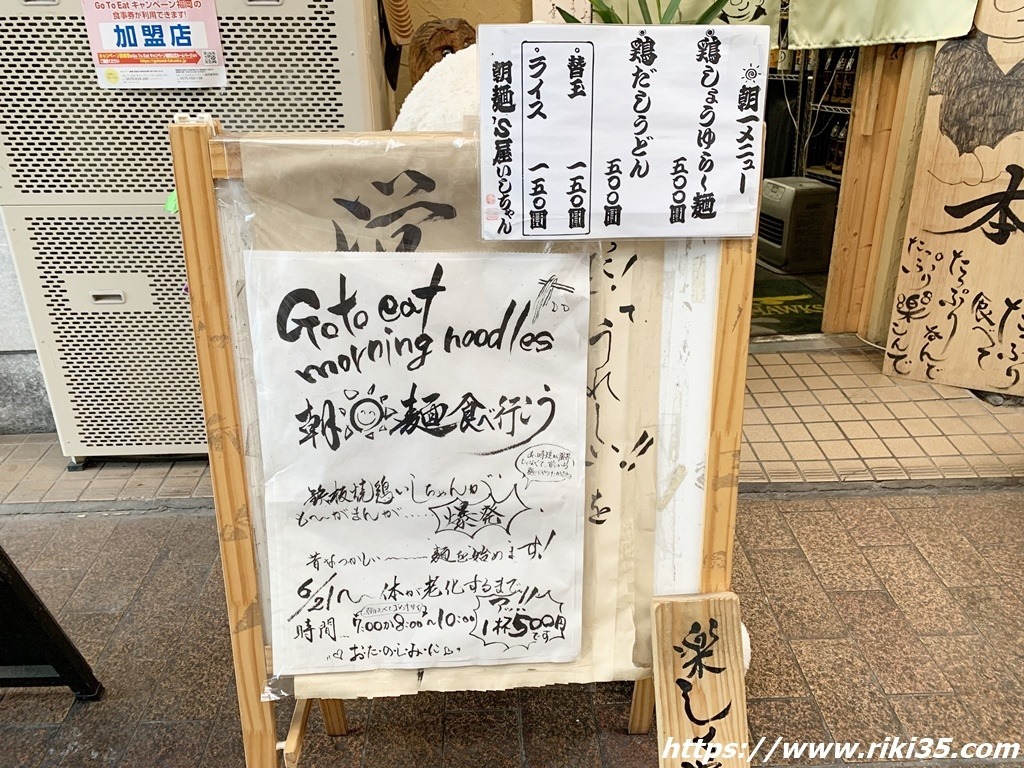 Go To Eat キャンペーン福岡の
食事券が利用できます!
加盟店
朝一メニュー
鶏しょうゆらー麺 五〇〇圓
鶏だしうどん 五〇〇圓
替玉 一五〇圓
ライス 一五〇圓
朝麺'S屋いしちゃん
Go to eat
morning noodles
朝麺食べ行こう
鉄板焼鶏いしちゃんが
も〜がまんが……爆発
昔なつかしい〜〜麺を始めます!
6/21〜体が老化するまで
時間…7:00か8:00〜10:00
1杯500円
です
おたのしみに
うれしい
!!
を
本
たっぷり
食べて
たらふく
楽しんで
楽し
https://www.riki35.com